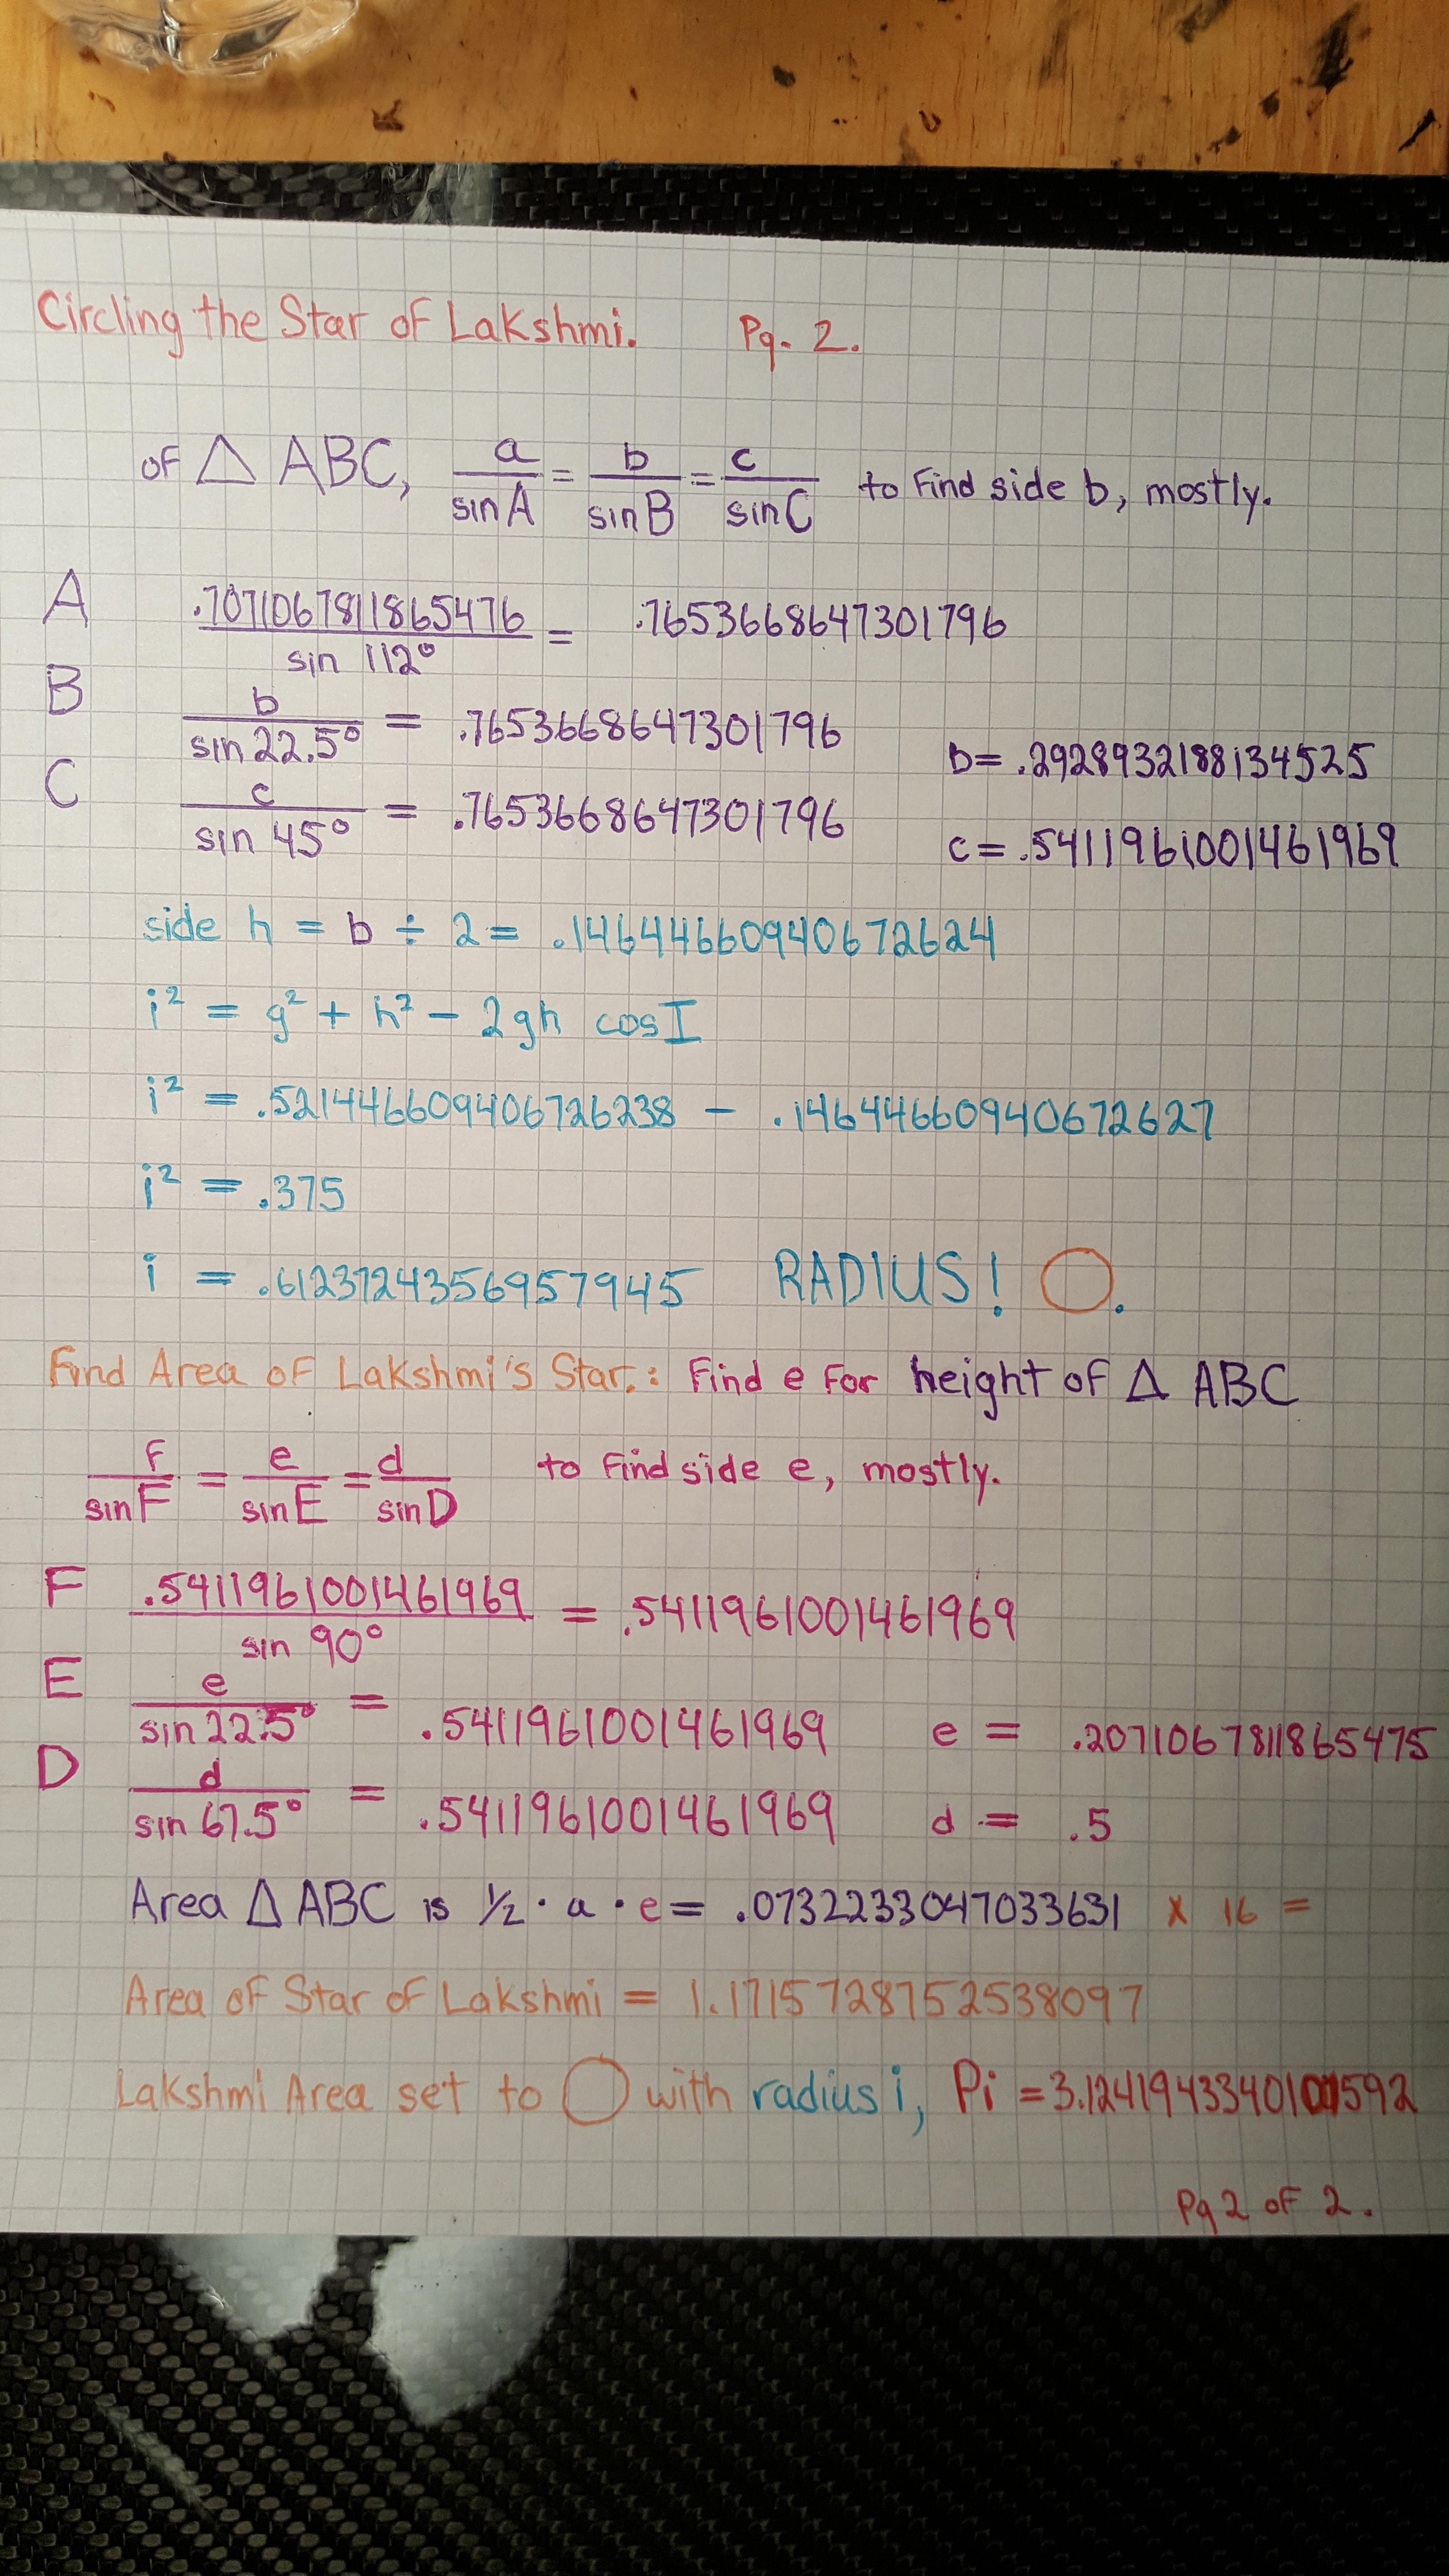 Circling the Star of Lakshmi. Pg. 2.
of △ ABC, a/sinA = b/sinB = c/sinC to find side b, mostly.
A .7071067811865476/sin 112° = .7653668647301796
B b/sin 22.5° = .7653668647301796 b = .2928932188134525
C c/sin 45° = .7653668647301796 c = .5411961001461969
side h = b ÷ 2 = .14644660940672624
i² = g² + h² - 2gh cos I
i² = .521446609406726238 - .14644660940672627
i² = .375
i = .6123724356957945 RADIUS! ○.
Find Area of Lakshmi's Star.: Find e for height of △ ABC
f/sinF = e/sinE = d/sinD to find side e, mostly.
F .5411961001461969/sin 90° = .5411961001461969
E e/sin 22.5° = .5411961001461969 e = .2071067811865475
D d/sin 67.5° = .5411961001461969 d = .5
Area △ ABC is ½ · a · e = .0732233047033631 x 16 =
Area of Star of Lakshmi = 1.1715728752538097
Lakshmi Area set to ○ with radius i, Pi = 3.1241943340101592
Pg 2 of 2.